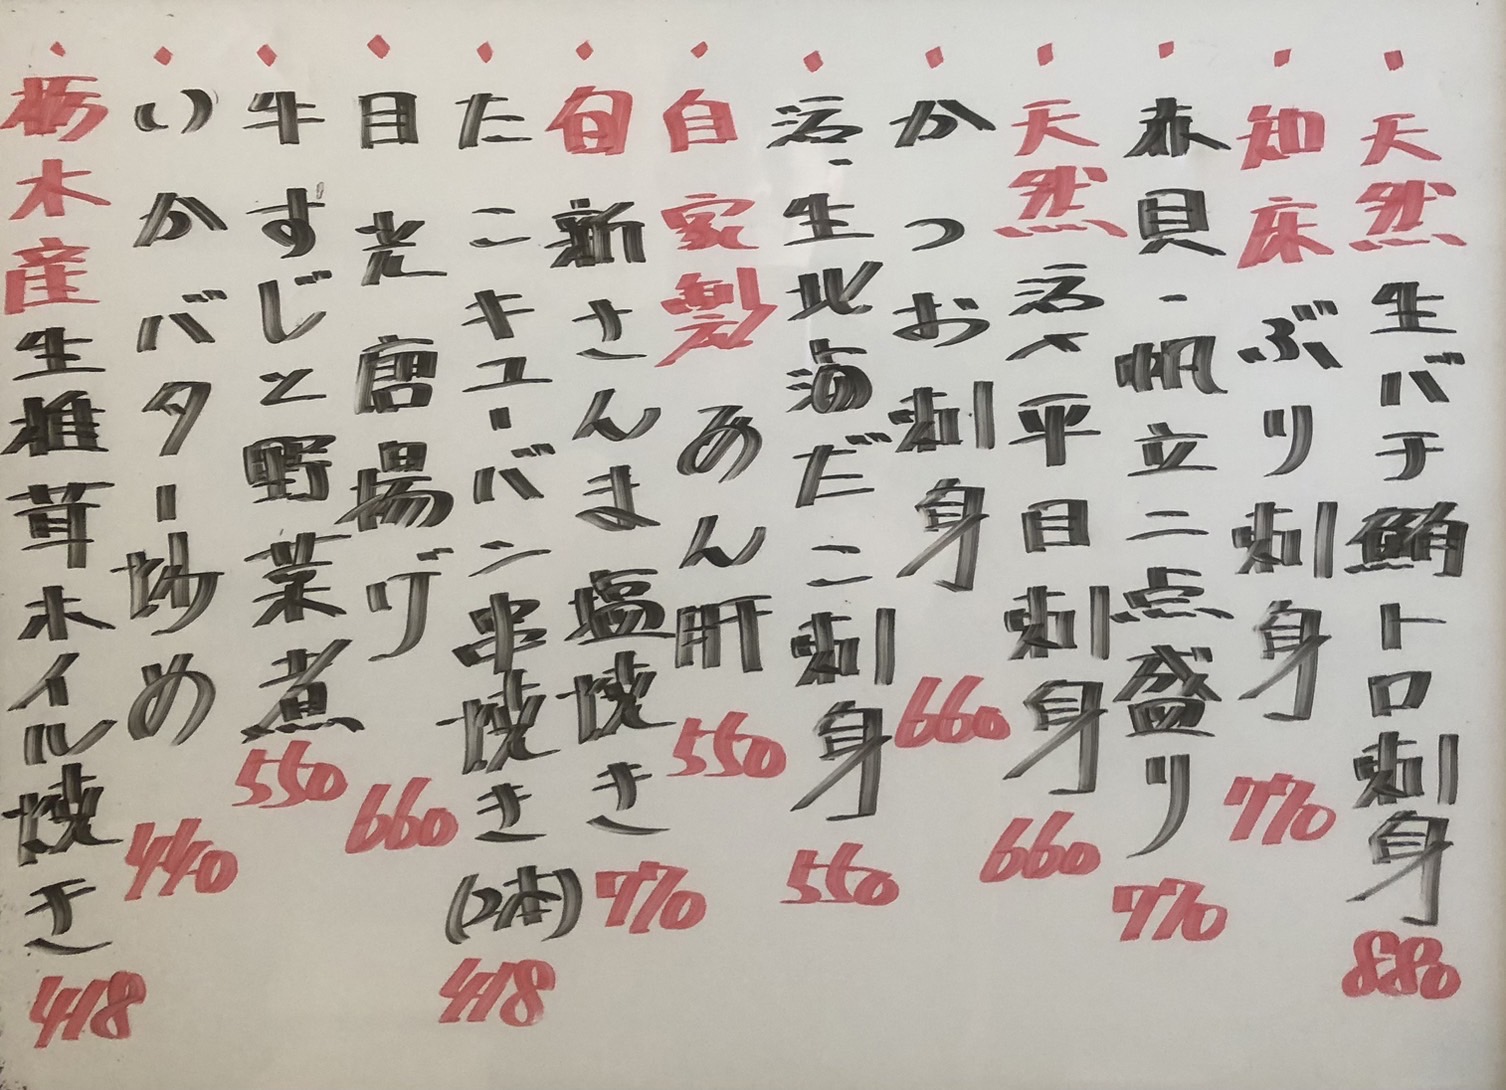 天然生バチ鮪トロ刺身 880
知床ぶり刺身 770
赤貝・帆立二点盛り 770
天然活〆平目刺身 660
かつお刺身 660
活・生北海だこ刺身 550
自家製あん肝 550
旬新さんま塩焼き 770
たこキューバン串焼き(2本) 418
目光唐揚げ 660
牛すじと野菜煮 550
いかバター炒め 440
栃木産生椎茸ホイル焼き 418